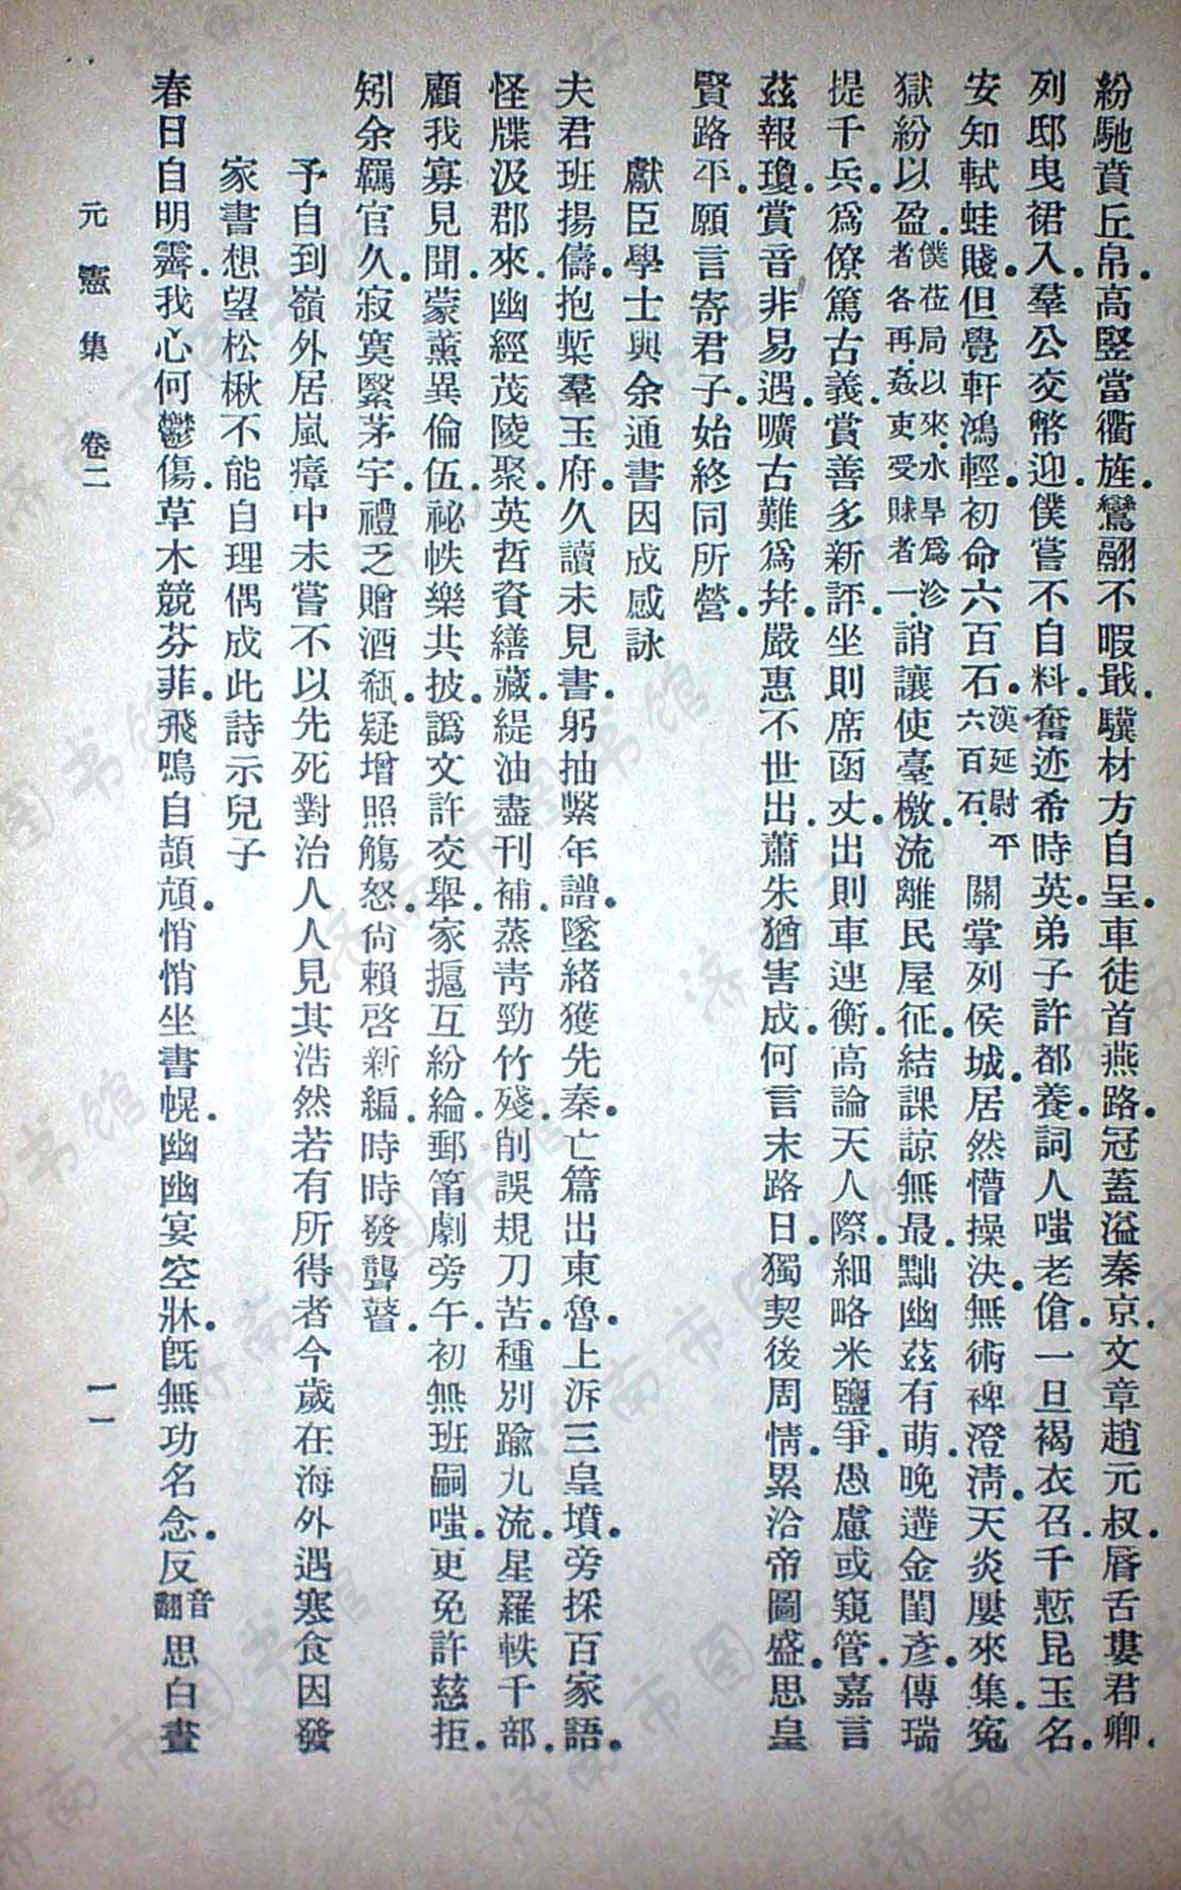 紛馳賁丘帛。高竪當衢旌。鸞翮不暇戢。驥材方自呈。車徒首燕路。冠蓋溢秦京。文章趙元叔。脣舌婁君卿。
列邸曳裾入。羣公交幣迎。僕嘗不自料。奮迹希時英。弟子許都養。詞人嗤老傖。一旦褐衣召。千慙昆玉名。
安知軾蛙賤。但覺軒鴻輕。初命六百石。漢延尉平六百石。關掌列侯城。居然懵操決。無術裨澄淸。天炎屢來集。寃
獄紛以盈。僕莅局以來。水旱爲沴者各再。姦吏受賕者一。誚讓使臺檄。流離民屋征。結課諒無最。黜幽茲有萌。晚遴金閨彥。傳瑞
提千兵。爲僚篤古義。賞善多新評。坐則席函丈。出則車連衡。高論天人際。細略米鹽爭。愚慮或窺管。嘉言
茲報瓊。賞音非易遇。曠古難爲幷。嚴惠不世出。蕭朱猶害成。何言末路日。獨契後周情。累洽帝圖盛。思皇
賢路平。願言寄君子。始終同所營。
獻臣學士與余通書因成感詠
夫君班揚儔。抱槧羣玉府。久讀未見書。躬抽繫年譜。墜緒獲先秦。亡篇出東魯。上泝三皇墳。旁採百家語。
怪牒汲郡來。幽經茂陵聚。英哲資繕藏。緹油盡刊補。蒸靑勁竹殘。削誤規刀苦。種別踰九流。星羅軼千部。
顧我寡見聞。蒙薰異倫伍。祕帙樂共披。譌文許交舉。家搹互紛綸。郵筩劇旁午。初無班嗣嗤。更免許慈拒。
矧余羈官久。寂寞緊茅宇。禮乏贈酒瓻。疑增照觴怒。尙賴啓新編。時時發聾瞽。
予自到嶺外居嵐瘴中未嘗不以先死對治人人見其浩然若有所得者今歲在海外遇寒食因發
家書想望松楸不能自理偶成此詩示兒子
春日自明霽。我心何鬱傷。草木競芬菲。飛鳴自頡頏。悄悄坐書幌。幽幽宴空牀。旣無功名念。反音翻思白晝
元憲集 卷二 一一